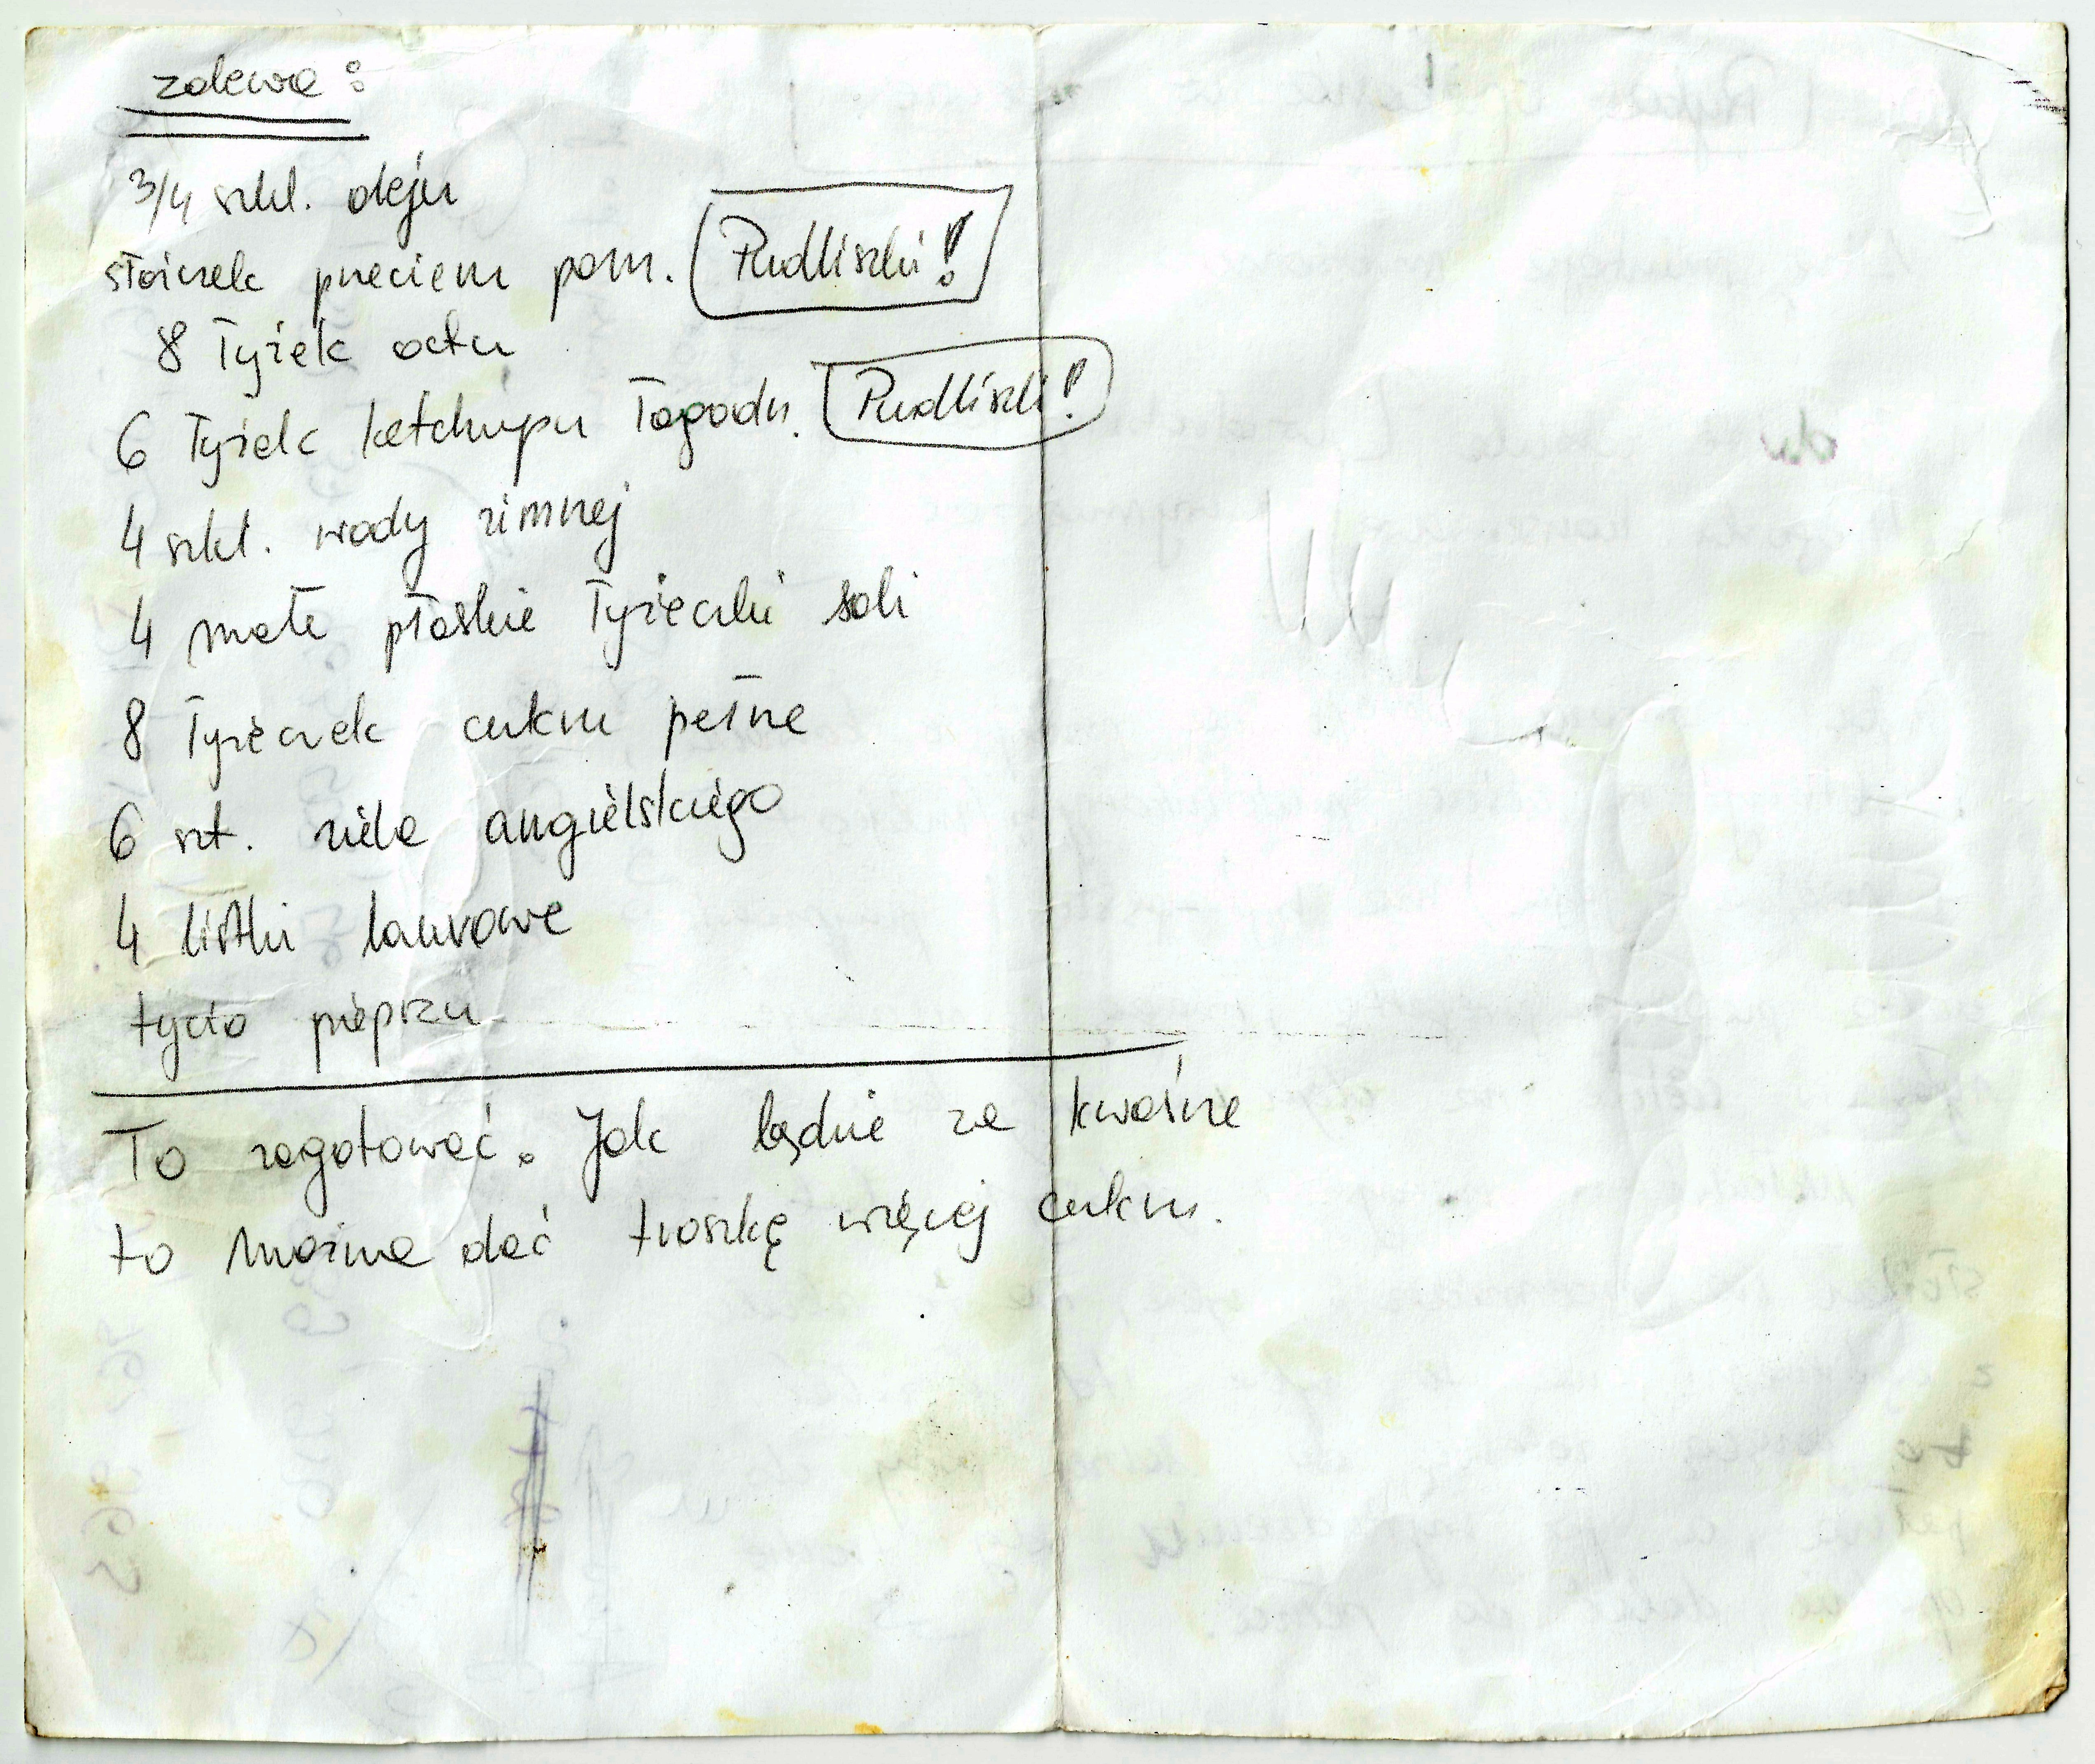 zalewa:
3/4 szkl. oleju
słoiczek przeciem pom. Pudliszki!
8 łyżek octu
6 łyżek ketchupu łagodn. Pudliszki!
4 szkl. wody zimnej
4 małe płaskie łyżeczki soli
8 łyżeczek cukru pełne
6 szt. ziela angielskiego
4 listki laurowe
tycio pieprzu
To zagotować. Jak będzie za kwaśne
to można dać troszkę więcej cukru.